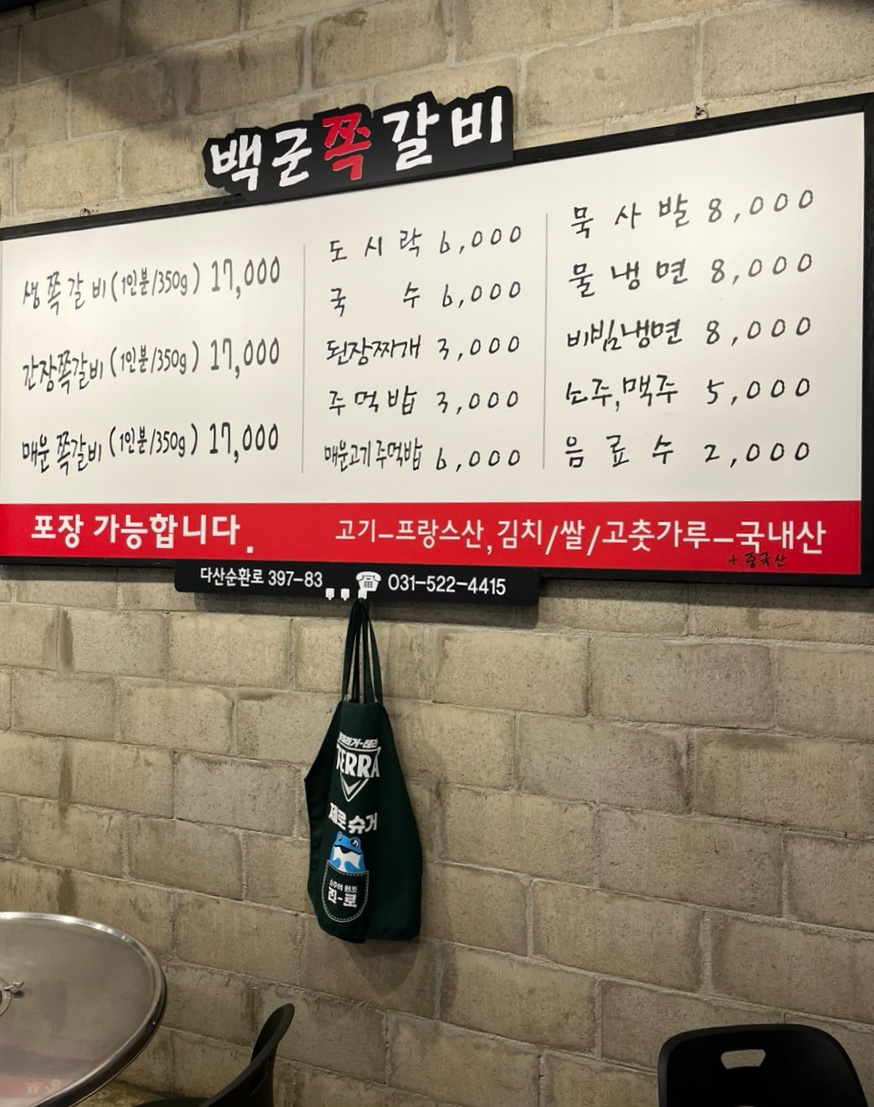 백군쪽갈비
생쪽갈비(1인분/350g) 17,000
간장쪽갈비(1인분/350g) 17,000
매운쪽갈비(1인분/350g) 17,000
도시락 6,000
국수 6,000
된장찌개 3,000
주먹밥 3,000
매운고기주먹밥 6,000
묵사발 8,000
물냉면 8,000
비빔냉면 8,000
소주,맥주 5,000
음료수 2,000
포장 가능합니다.
고기-프랑스산,김치/쌀/고춧가루-국내산
+중국산
다산순환로 397-83 031-522-4415
TERRA
제로 슈거
소주의 원조
진-로